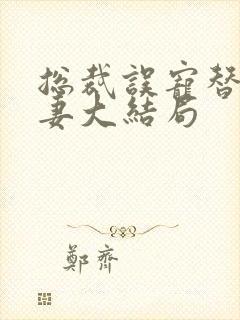 总裁誤寵替
妻大結局
鄭齊